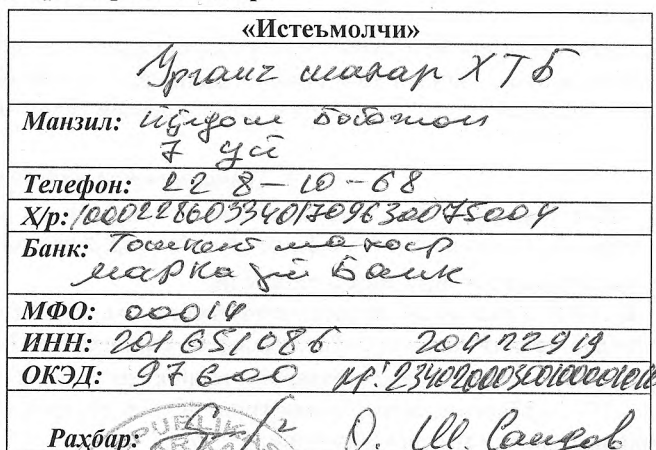 «Истеъмолчи»
Урганч шахар ХТБ
Манзил: Йўлдош Бобожон
7 уй
Телефон: 22 8-10-68
Х/р: 100022860334017096300075004
Банк: Тошкент шахар
Марказий Банк
МФО: 00014
ИНН: 201651086 204122919
ОКЭД: 97600
Рахбар: О. Ш. Саидов